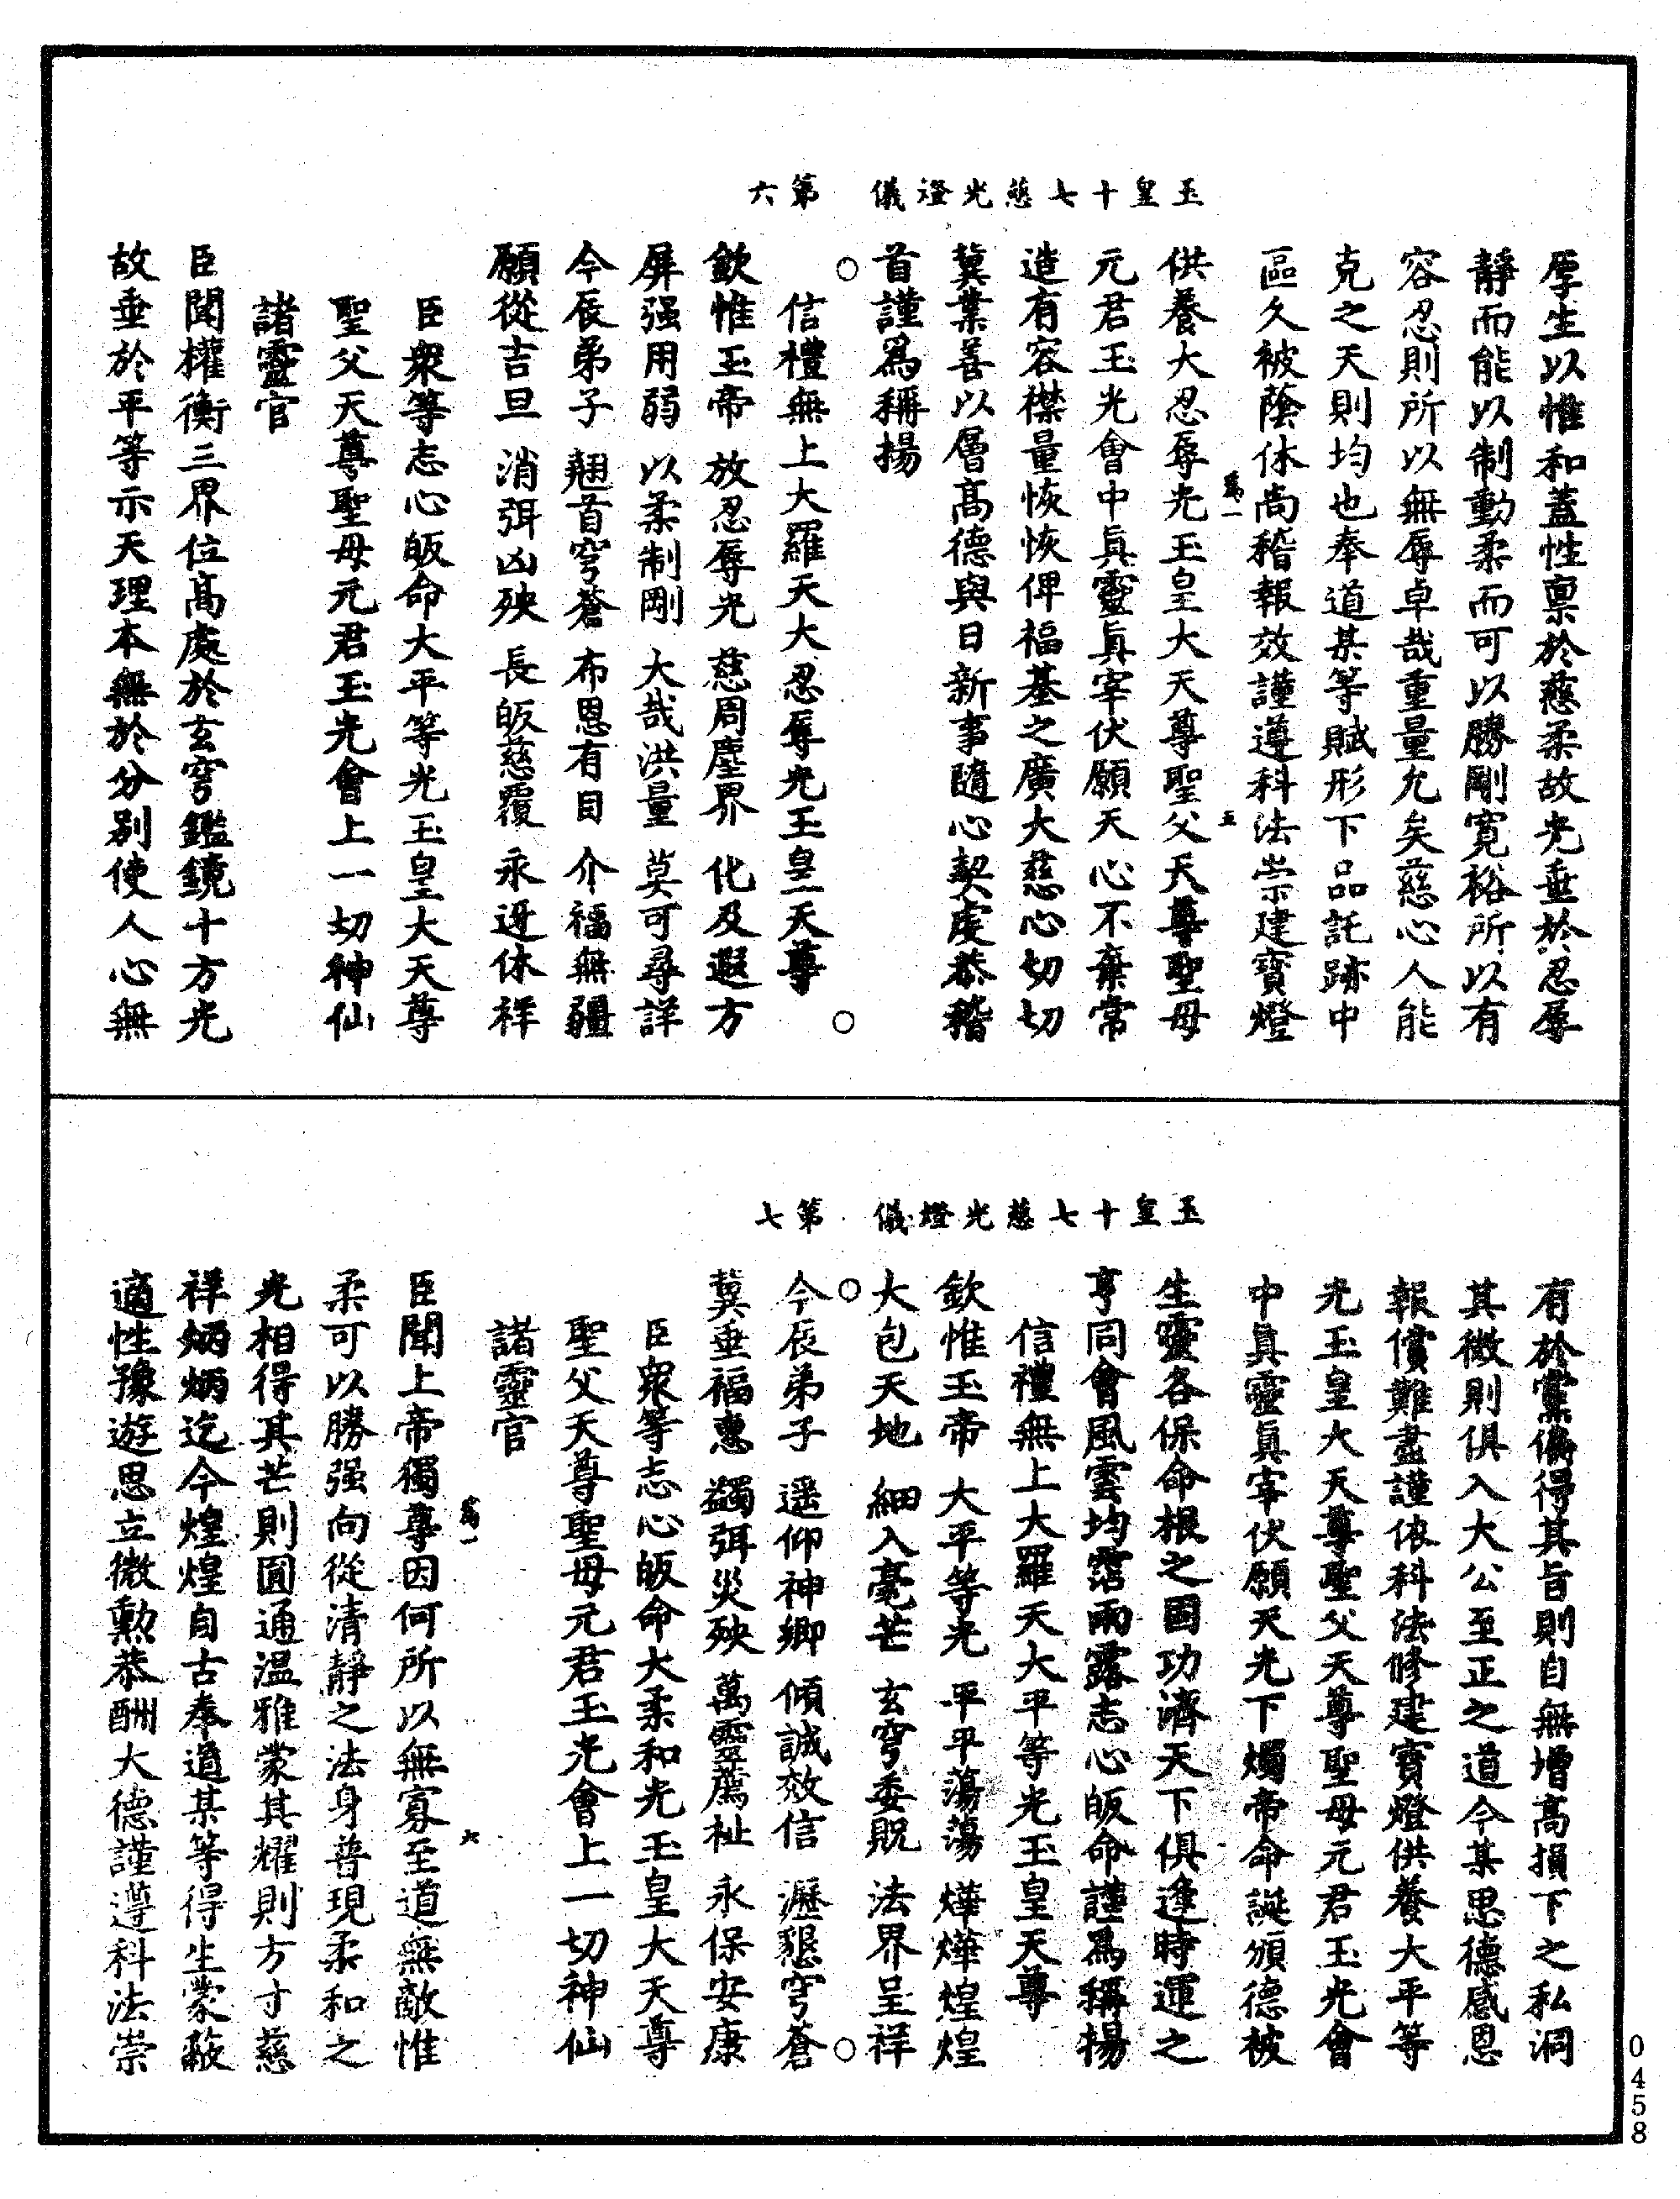 玉皇十七慈光燈儀　第六
厚生以惟和蓋性稟於慈柔故光垂於忍辱
靜而能以制動柔而可以勝剛寬裕所以有
容忍則所以無辱卓哉重量允矣慈心人能
克之天則均也奉道某等賦形下品託跡中
區久被蔭休尚稽報效謹遵科法崇建寶燈
為一　五
供養大忍辱光玉皇大天尊聖父天尊聖母
元君玉光會中眞靈眞宰伏願天心不棄常
造有容襟量恢恢俾福基之廣大慈心切切
冀業善以層高德與日新事隨心契虔恭稽
首謹爲稱揚
○　○
信禮無上大羅天大忍辱光玉皇大天尊
欽惟玉帝　放忍辱光　慈周塵界　化及遐方
屏强用弱　以柔制剛　大哉洪量　莫可尋詳
今辰弟子　翹首穹蒼　布恩有目　介福無疆
願從吉旦　消弭凶殃　長皈慈覆　永迓休祥
臣衆等志心皈命大平等光玉皇大天尊
聖父天尊聖母元君玉光會上一切神仙
諸靈官
臣聞權衡三界位高處於玄穹鑑鏡十方光
故垂於平等示天理本無於分别使人心無
玉皇十七慈光燈儀　第七
有於黨偏得其旨則自無增高損下之私洞
其微則俱入大公至正之道今某思德感恩
報償難盡謹依科法修建寶燈供養大平等
光玉皇大天尊聖父天尊聖母元君玉光會
中眞靈眞宰伏願天光下燭帝命誕頒德被
生靈各保命根之固功濟天下俱逢時運之
亨同會風雲均霑雨露志心皈命謹爲稱揚
信禮無上大羅天大平等光玉皇天尊
欽惟玉帝　大平等光　平平蕩蕩　燁燁煌煌
大包天地　細入毫芒　玄穹委貺　法界呈祥
○　○
今辰弟子　遥仰神卿　傾誠效信　瀝懇穹蒼
冀垂福惠　蠲弭災殃　萬靈薦祉　永保安康
臣衆等志心皈命大柔和光玉皇大天尊
聖父天尊聖母元君玉光會上一切神仙
諸靈官
為一　六
臣聞上帝獨尊因何所以無寡至道無敵惟
柔可以勝强向從清靜之法身普現柔和之
光相得其芒則圓通溫雅蒙其耀則方寸慈
祥炳炳迄今煌煌自古奉道某等得生蒙蔽
適性豫遊思立微勲恭酬大德謹遵科法崇
0458